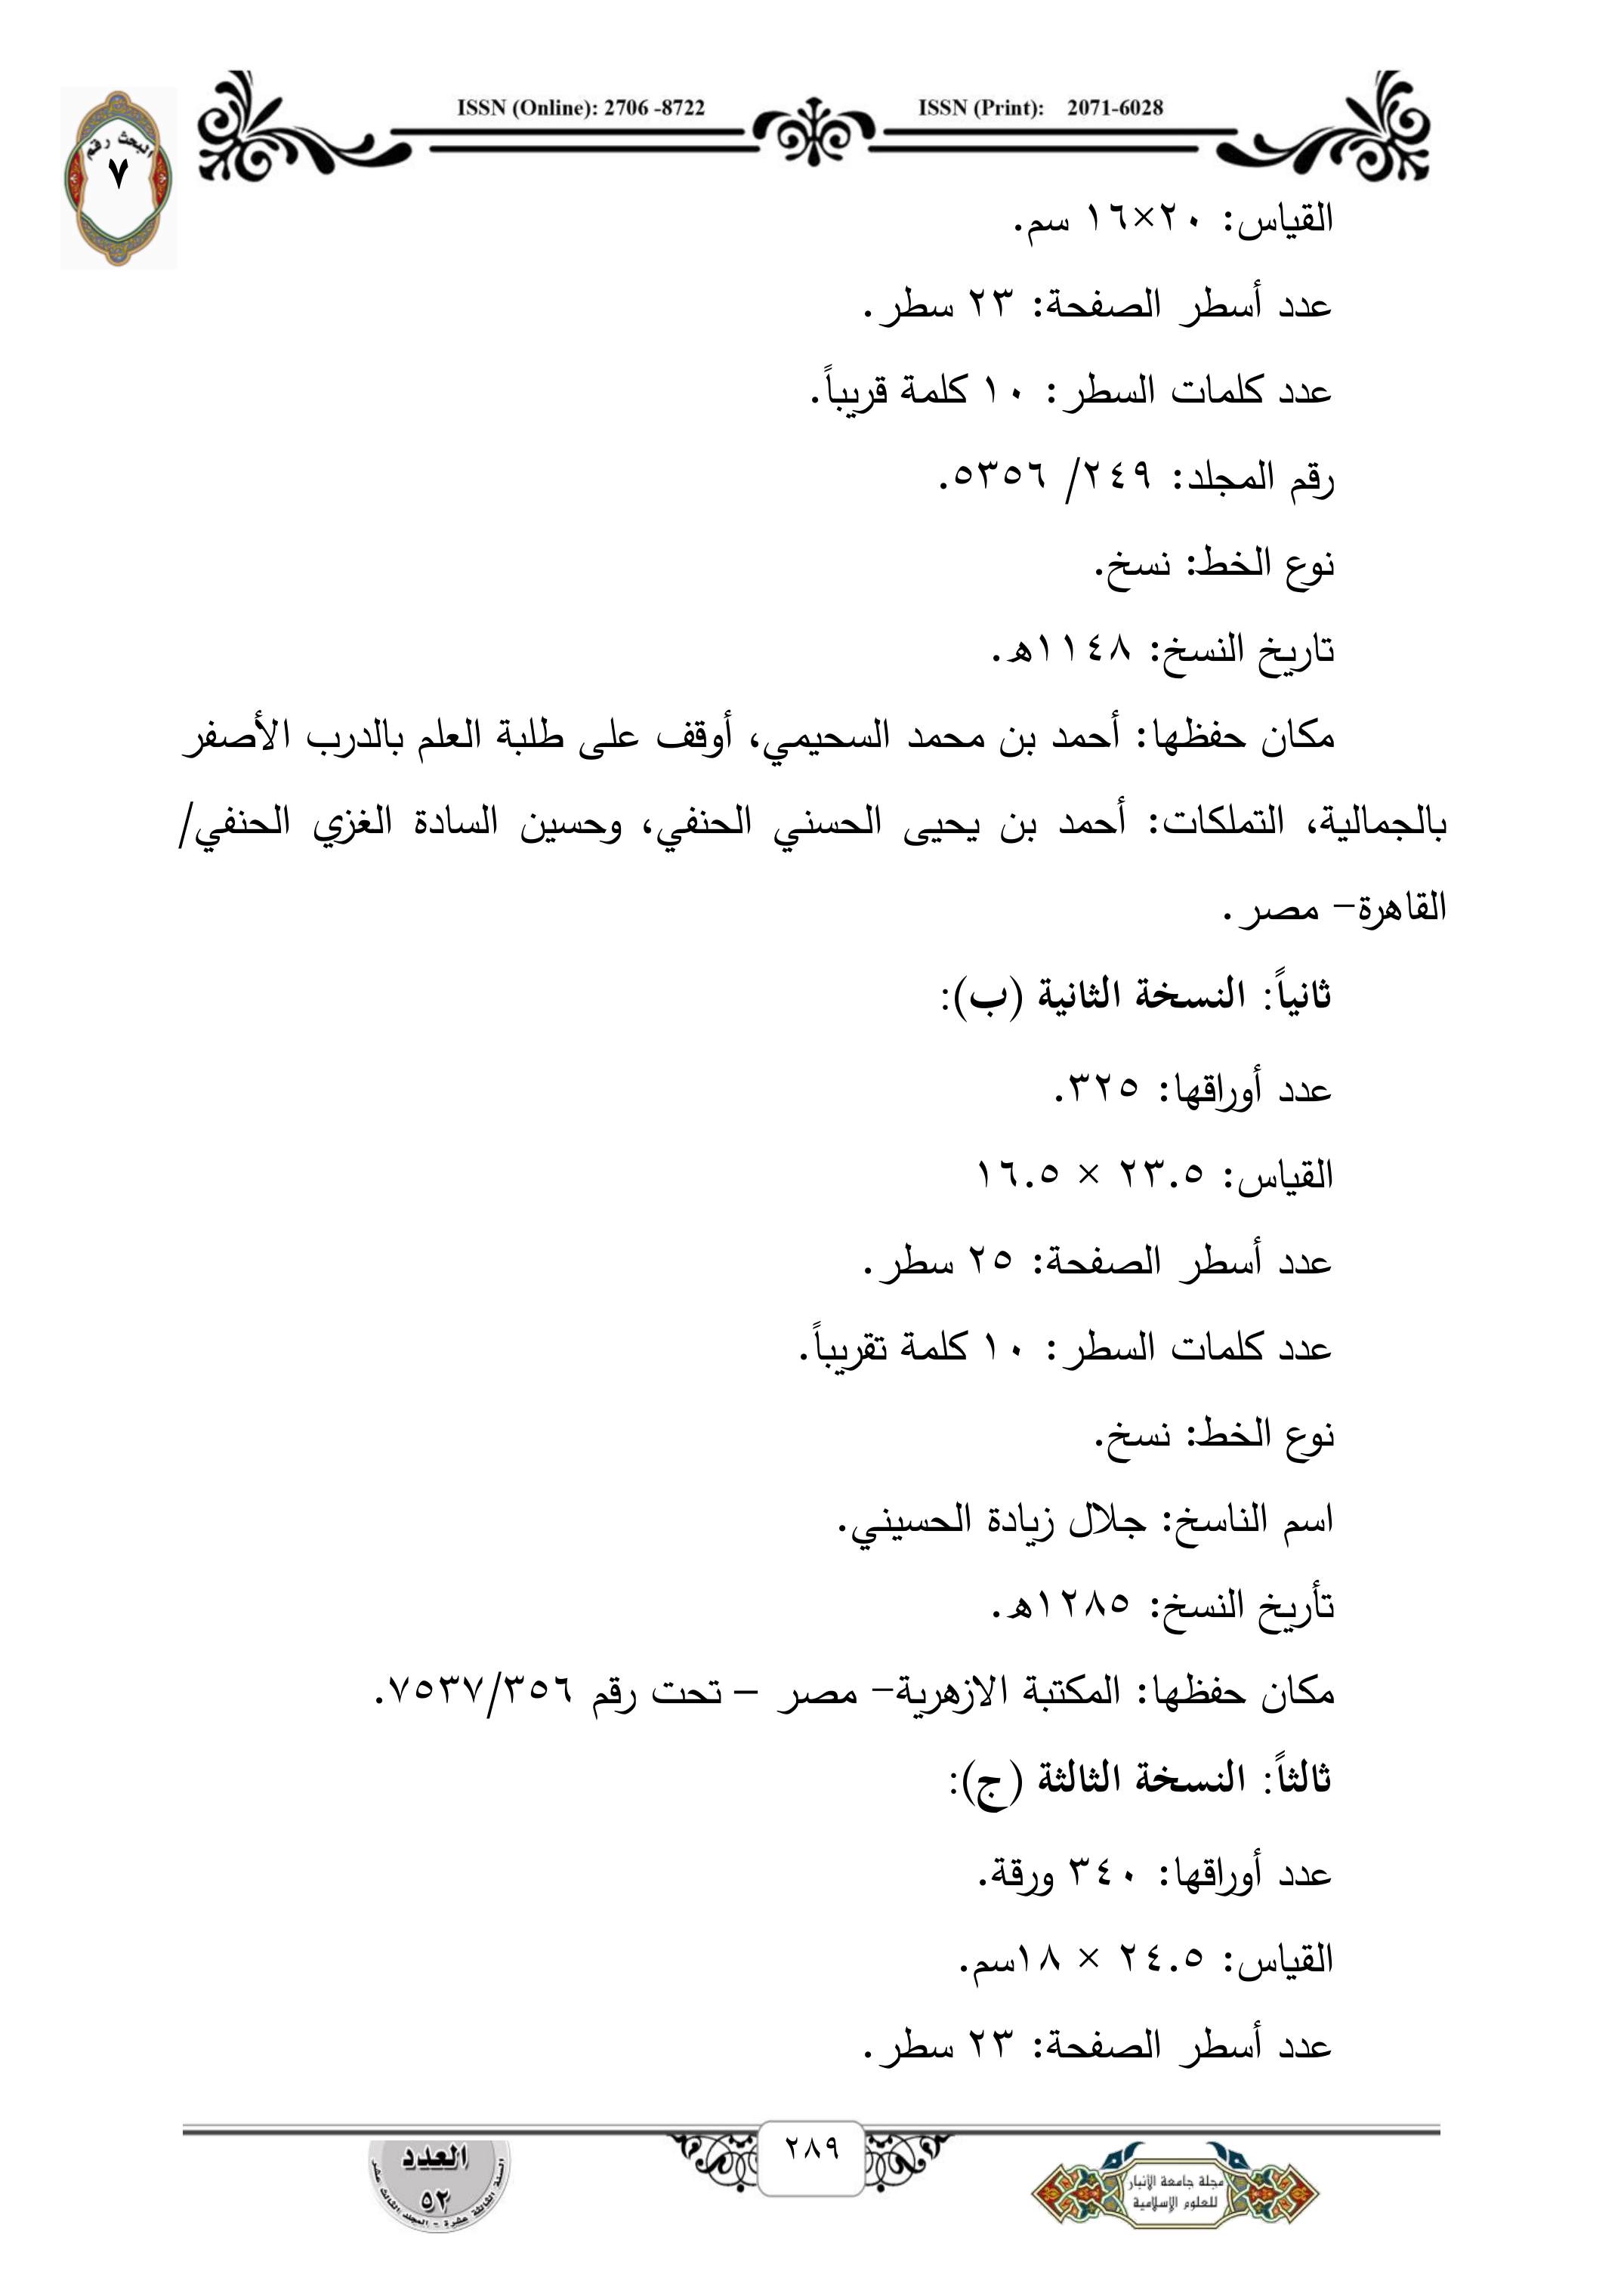 ISSN (Online): 2706 -8722 ISSN (Print): 2071-6028
البحث رقم
٧
القياس: ٢٠×١٦ سم.
عدد أسطر الصفحة: ٢٣ سطر.
عدد كلمات السطر: ١٠ كلمة قريباً.
رقم المجلد: ٢٤٩/ ٥٣٥٦.
نوع الخط: نسخ.
تاريخ النسخ: ١١٤٨ه.
مكان حفظها: أحمد بن محمد السحيمي، أوقف على طلبة العلم بالدرب الأصفر
بالجمالية، التملكات: أحمد بن يحيى الحسني الحنفي، وحسين السادة الغزي الحنفي/
القاهرة– مصر.
ثانياً: النسخة الثانية (ب):
عدد أوراقها: ٣٢٥.
القياس: ٢٣.٥ × ١٦.٥
عدد أسطر الصفحة: ٢٥ سطر.
عدد كلمات السطر: ١٠ كلمة تقريباً.
نوع الخط: نسخ.
اسم الناسخ: جلال زيادة الحسيني.
تأريخ النسخ: ١٢٨٥ه.
مكان حفظها: المكتبة الازهرية– مصر – تحت رقم ٧٥٣٧/٣٥٦.
ثالثاً: النسخة الثالثة (ج):
عدد أوراقها: ٣٤٠ ورقة.
القياس: ٢٤.٥ × ١٨سم.
عدد أسطر الصفحة: ٢٣ سطر.
مجلة جامعة الأنبار
للعلوم الإسلامية
٢٨٩
العدد
٥٢
السنة الثالثة عشرة – المجلد الثالث عشر